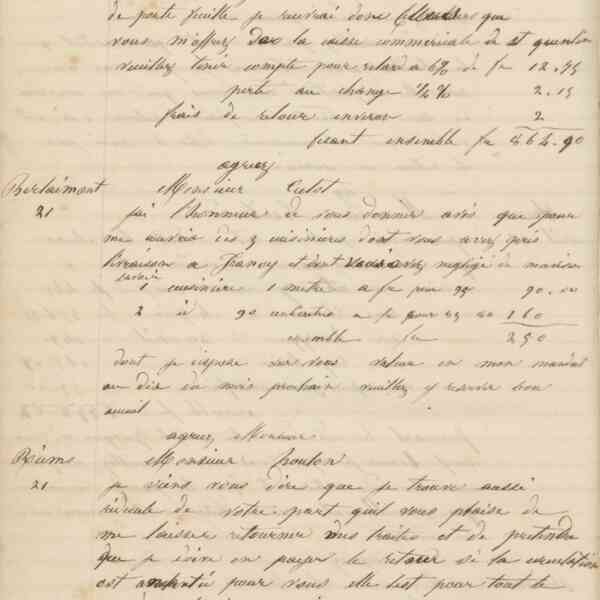 de porte feuille je pouvrai donc que
vous m'offrez la caisse commerciale de st quentin
veuillez tenir compte pour retard a 6% de fr 12.45
perte au change ½% 2.15
frais de retour environ 2
fesant ensemble fr 464.90
agréez
Berlaimont Monsieur Culot
21 jai lhonneur de vous donner avis que pour
me couvrir des 3 cuisinieres dont vous avez pris
livraison a et dont vous avez negligé de
savoir
1 cuisinière 1 mètre a fr 90
2 a 90 a fr pour 160
ensemble fr 250
dont je dispose sur vous valeur en mon mandat
au dix du mois prochain veuillez y reserver bon
acueil
agréez Monsieur
Reims Monsieur
21 je viens vous dire que je trouve aussi
ridicule de votre part quil vous plaise de
me laisser retourner mes traites et de pretendre
que je doive en payer le retour si la
est pour vous elle lest pour tout le